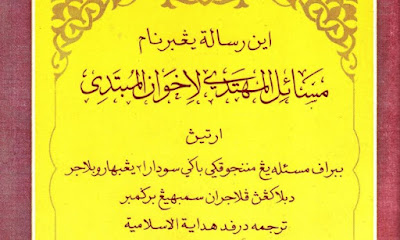 اين رسالة يڠبرنام
مَسَائِل المُهْتَدِي لِإخْوَان المُبْتَدِي
ارتيڽ
ببراف مسئله يڠ مننجوقكي باكي سودارا٢ يڠبهارو بلاجر
دبلاكڠن ڤلاجران سمبهيڠ بركمبر
ترجمه درفد هداية الاسلامية